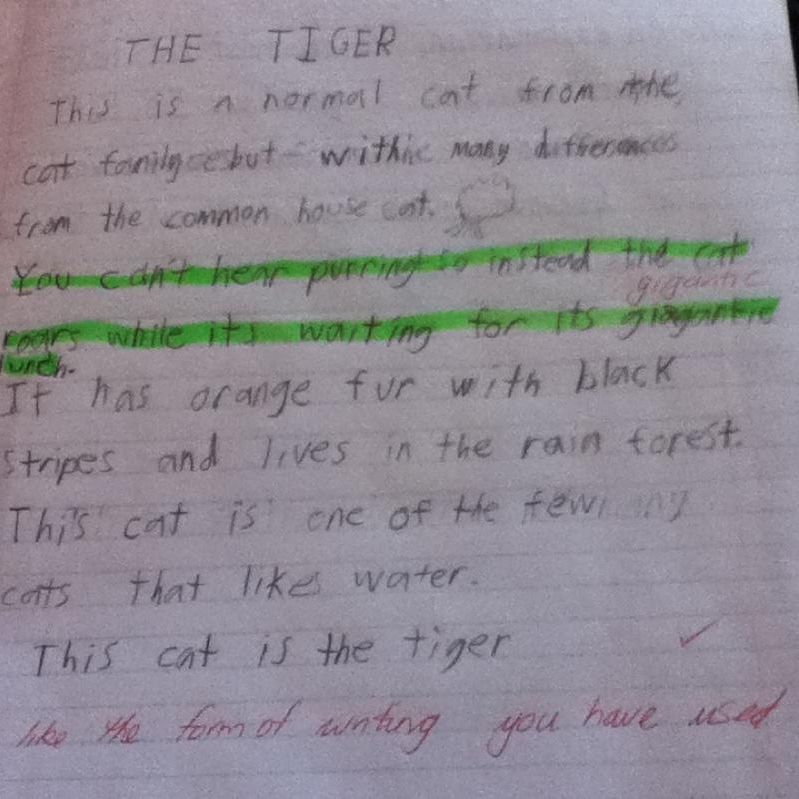 THE TIGER
This is a normal cat from the
cat family but with many differences
from the common house cat.
You can't hear purring so instead the cat
gigantic
roars while its waiting for its giagantic
lunch.
It has orange fur with black
stripes and lives in the rain forest.
This cat is one of the few
catts that likes water.
This cat is the tiger
like the form of writing you have used